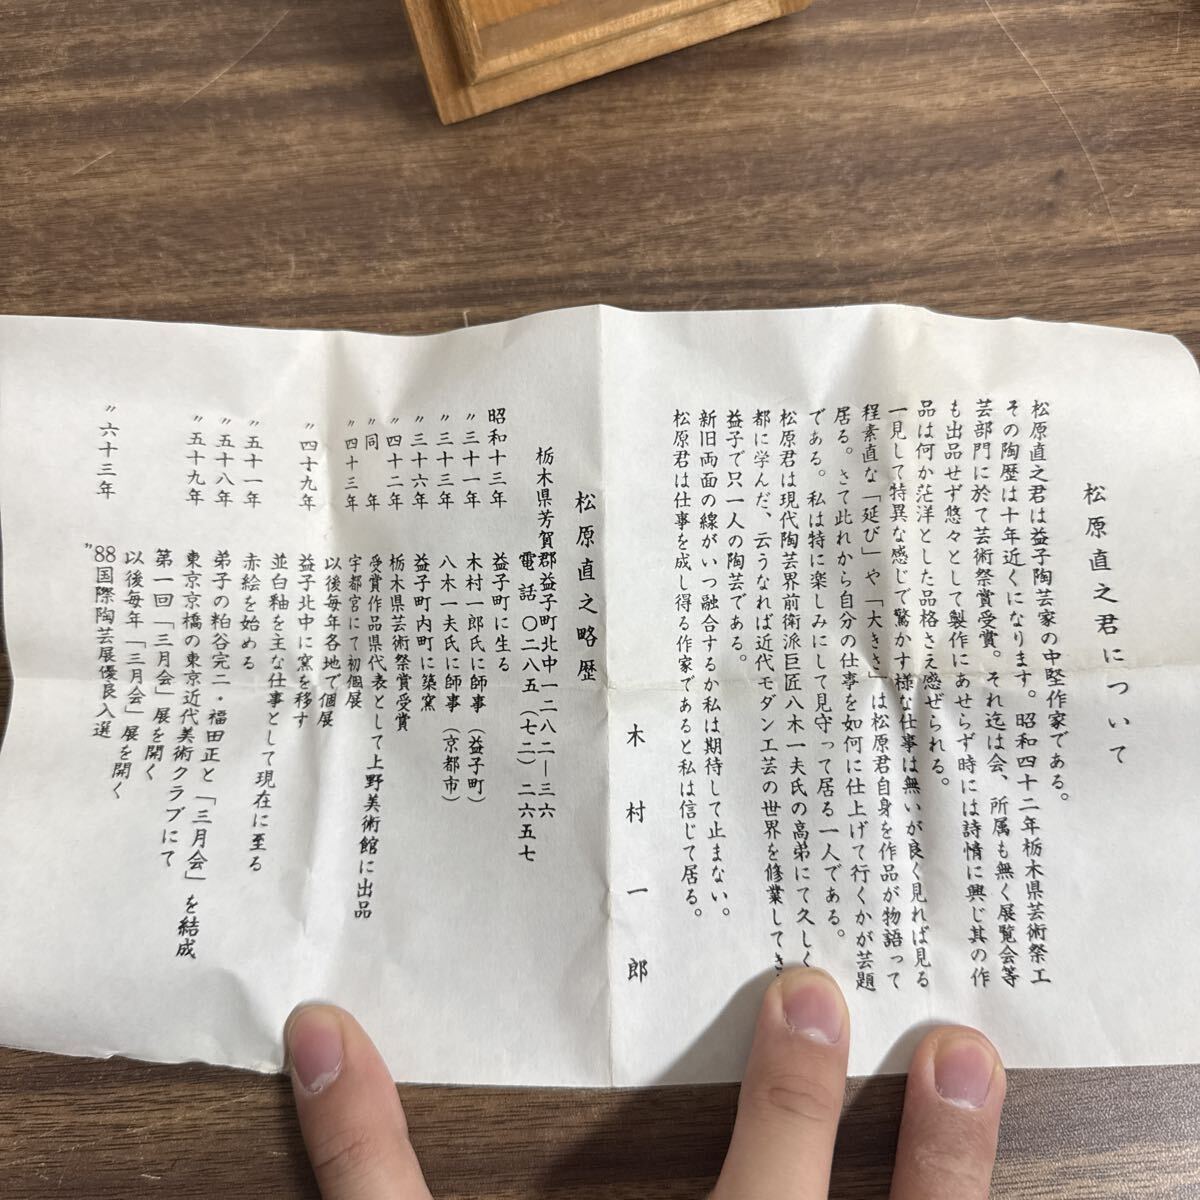 松原直之君について
松原直之君は益子陶芸家の中堅作家である。
その陶歴は十年近くになります。昭和四十二年栃木県芸術祭工
芸部門に於て芸術祭賞受賞。それ迄は会、所属も無く展覧会等
も出品せず悠々として製作にあせらず時には詩情に興じ其の作
品は何か茫洋とした品格さえ感ぜられる。
一見して特異な感じで驚かす様な仕事は無いが良く見れば見る
程素直な「延び」や「大きさ」は松原君自身を作品が物語って
居る。さて此れから自分の仕事を如何に仕上げて行くかが芸題
である。私は特に楽しみにして見守って居る一人である。
松原君は現代陶芸界前衛派巨匠八木一夫氏の高弟にて久しく
都に学んだ、云うなれば近代モダン工芸の世界を修業してき
益子で只一人の陶芸である。
新旧両面の線がいつ融合するか私は期待して止まない。
松原君は仕事を成し得る作家であると私は信じて居る。
木村一郎
松原直之略歴
栃木県芳賀郡益子町北中一二八二―三六
電話〇二八五(七二)二六五七
昭和十三年 益子町に生る
〃三十一年 木村一郎氏に師事(益子町)
〃三十三年 八木一夫氏に師事(京都市)
〃三十六年 益子町内町に築窯
〃四十二年 栃木県芸術祭賞受賞
〃同　年 受賞作品県代表として上野美術館に出品
〃四十三年 宇都宮にて初個展
以後毎年各地で個展
〃四十九年 益子北中に窯を移す
並白釉を主な仕事として現在に至る
〃五十一年 赤絵を始める
〃五十八年 弟子の粕谷完二・福田正と「三月会」を結成
〃五十九年 東京京橋の東京近代美術クラブにて
第一回「三月会」展を開く
以後毎年「三月会」展を開く
〃六十三年 〃88国際陶芸展優良入選